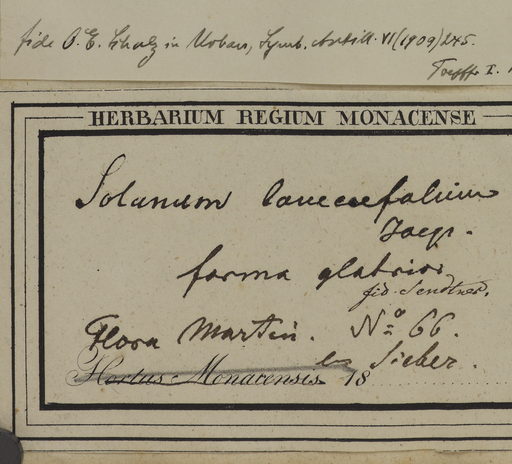 fide O. E. Schulz in Urban, Symb. Antill. VI (1909) 245.
I.
HERBARIUM REGIUM MONACENSE
Solanum lanceaefolium
Jacq.
forma glabrior
fid. Sendtner.
Flora Martin. No 66.
ex Sieber.
Hortus Monacensis 18